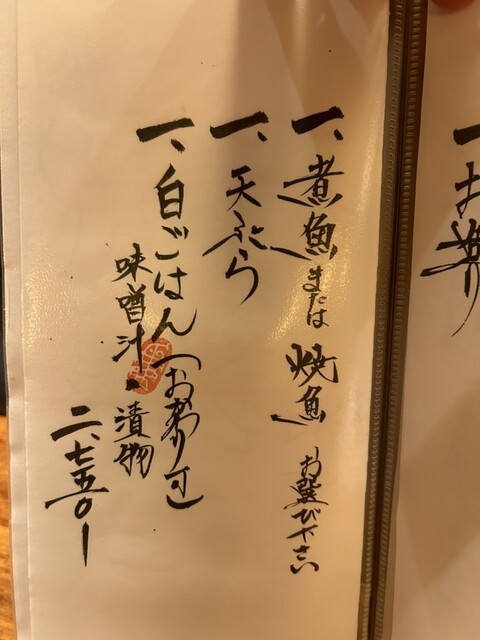 一、お造り
一、煮魚または焼魚 お選び下さい
一、天ぷら
一、白ごはん(おかわり可)
味噌汁・漬物
二、七五〇ー